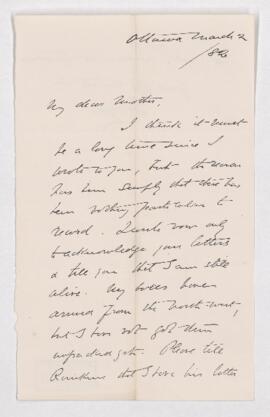 Ottawa March 2
/86
My dear Mother,
I think it must
be a long time since I
wrote to you, but the reason
has been simply that there has
been nothing particular to
record. I write now only
to acknowledge your letters
& tell you that I am still
alive. My boxes have
arrived from the North-west,
but I have not got them
unpacked yet. Please tell
that I have his letter